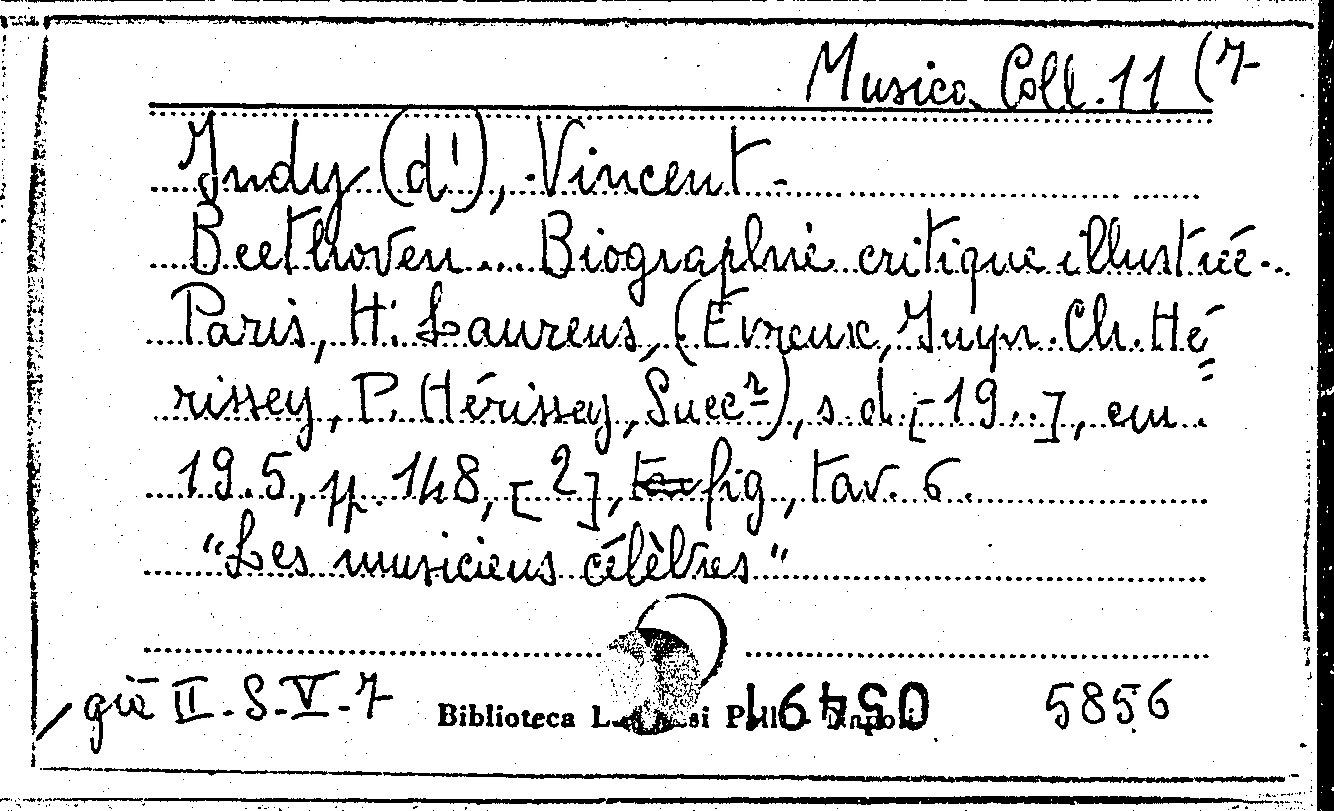 Musica Coll. 11 (7
Indy (d'), Vincent -
Beethoven.... Biographie critique illustrée...
Paris, H. Laurens, (Evreux, Imp. Ch. Hé=
rissey, P. Hérissey, Succr), s. d. [19..], cm.
19.5, pp. 148, [2], fig., tav. 6.
"Les musiciens célèbres"
già II. S. V. 7
Biblioteca
053491
5856